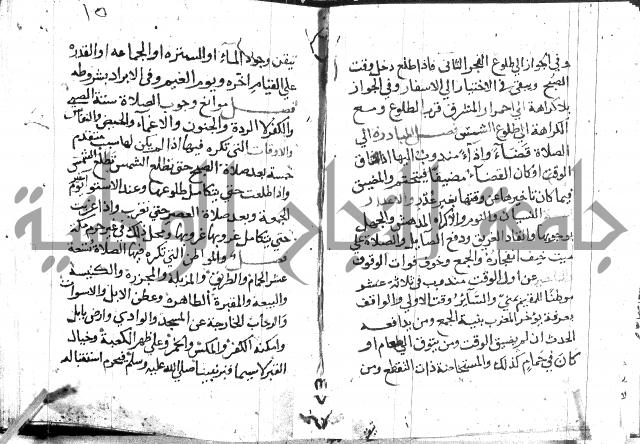 وفي الجواز الى طلوع الفجر الثاني فاذا طلع دخل وقت
الصبح ويبقى في الاختيار الى الاسفار وفي الجواز
بلا كراهة الى احمرار المشرق قرب الطلوع ومع
الكراهة الى طلوع الشمس فصل المبادرة الى
الصلاة قضاء واداء مندوب اليها اذا
الوقت وكان القضاء مضيقا فتتحتم والمضيق
فيما كان تأخيرها عن وقتها بغير عذر
النسيان والنوم والاكراه والجهل
بوجوبها وانقاذ الغريق ودفع الصايل والصلاة على
ميت خيف انفجاره والجمع وخوف فوات الوقوف
عن اول الوقت مندوب في ثلاثة عشر
موطنا للمقيم بمنى والسائر وقت الاولى والواقف
بعرفة يؤخر المغرب بنية الجمع ومن يدافعه
الحدث ان لم يضيق الوقت ومن يتوق الى طعام او
كان في حمام كذلك والمستحاضة ذات التقطع ومن
١٥
تيقن وجود الماء او السترة او الجماعة او القدرة
على القيام اخره ويوم الغيم وفي الابراد بشروطه
فصل موانع وجوب الصلاة ستة الصبى
والكفر لا الردة والجنون والاغماء والحيض والنفاس
والاوقات التي تكره فيها اذا لم يكن لها سبب متقدم
خمسة بعد صلاة الصبح حتى تطلع الشمس
واذا طلعت حتى يتكامل طلوعها وعند الاستواء
الجمعة وبعد صلاة العصر حتى تغرب واذا غربت
حتى يتكامل غروبها ومحل ذلك في غير حرم مكة
فصل والمواطن التي تكره فيها الصلاة تسعة
عشر الحمام والطريق والمزبلة والمجزرة والكنيسة
والبيعة والمقبرة الطاهرة وعطن الابل والاسواق
والرحاب الخارجة عن المسجد والوادي وارض بابل
وامكنة الكفر والمكس والخمر وعلى ظهر الكعبة وحيال
القبر لا سيما قبر نبينا صلى الله عليه وسلم فيحرم استقباله
جامعة الرياض